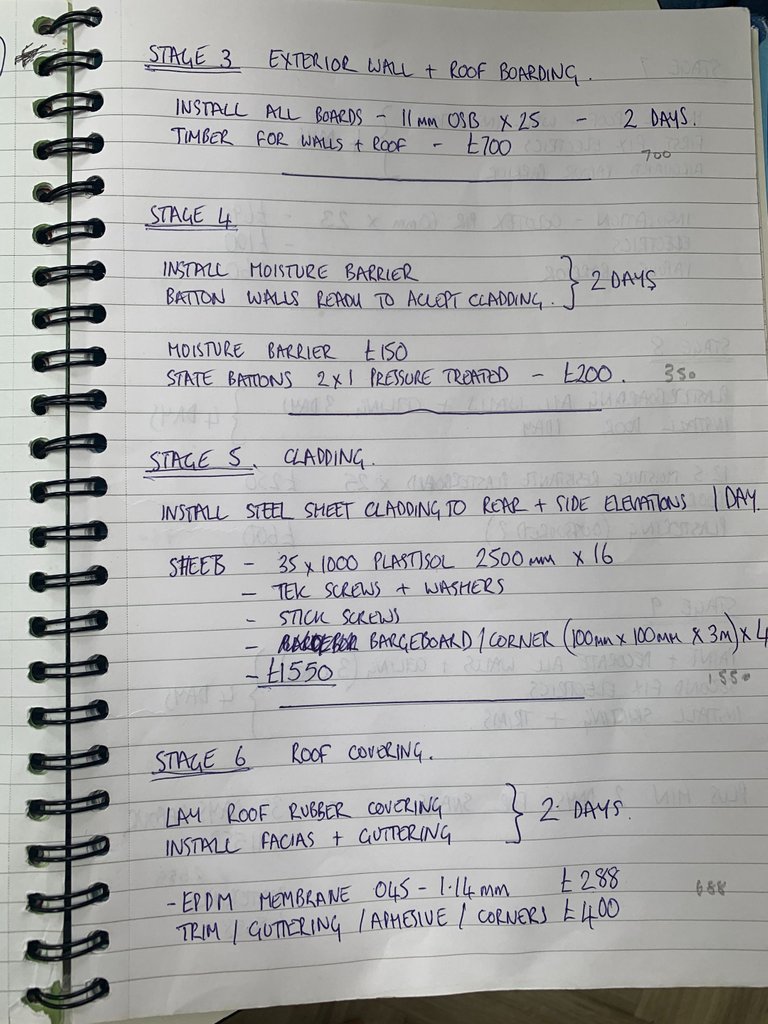 STAGE 3 EXTERIOR WALL + ROOF BOARDING.
INSTALL ALL BOARDS - 11mm OSB x 25 - 2 DAYS.
TIMBER FOR WALLS + ROOF - £700
700
STAGE 4
INSTALL MOISTURE BARRIER
BATTON WALLS READY TO ACCEPT CLADDING. } 2 DAYS
MOISTURE BARRIER £150
STATE BATTONS 2x1 PRESSURE TREATED - £200. 350
STAGE 5. CLADDING.
INSTALL STEEL SHEET CLADDING TO REAR + SIDE ELEVATIONS 1 DAY.
- 35 x 1000 PLASTISOL 2500mm x 16
- TEK SCREWS + WASHERS
- STICK SCREWS
- BARGEBOARD / CORNER (100mm x 100mm x 3m) x 4
- £1550
1550
STAGE 6 ROOF COVERING.
LAY ROOF RUBBER COVERING
INSTALL FACIAS + GUTTERING } 2 DAYS.
- EPDM MEMBRANE 045 - 1.14mm £288 688
TRIM / GUTTERING / ADHESIVE / CORNERS £400